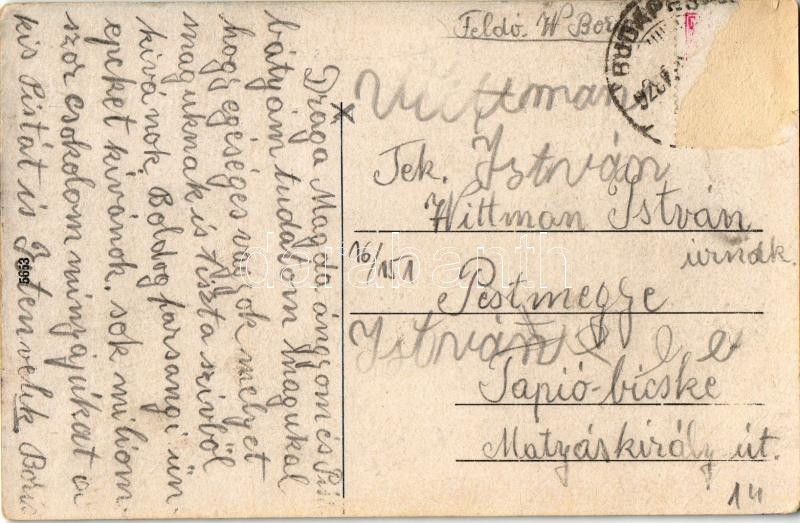 Feldó. W Bor
BUDAPEST
Drága Magda ángyom és Pis
bátyám tudatom Magukal
hogy egéséges vagyok melyet
maguknak is tiszta szivből
kivánok, Boldog farsangi ün.
epeket kivánok, sok miliom.
szor csokolom minyájukat
kis Pistát is Isten velik Boris
5663
Wittman
Tek. István
Wittman István
urnak.
76/151
Pestmegye
István
Tapió-bicske
Matyáskirály út.
14
darabanth